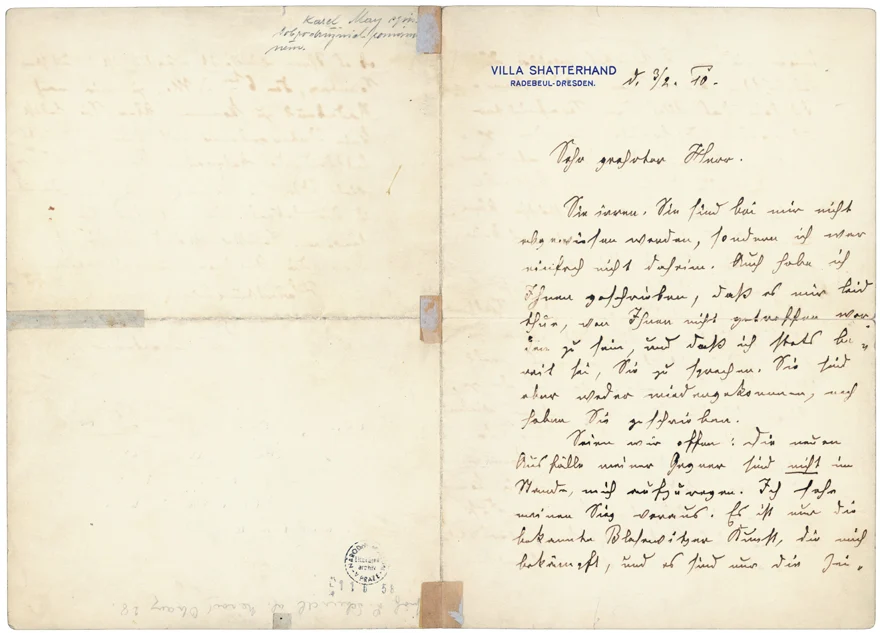 Karel May
VILLA SHATTERHAND
RADEBEUL-DRESDEN.
d. 3/2. 10.
Sehr geehrter Herr.
Sie irren. Sie sind bei mir nicht
abgewiesen worden, sondern ich war
einfach nicht daheim. Auch habe ich
Ihnen geschrieben, daß es mir leid
thue, von Ihnen nicht getroffen wor-
den zu sein, und daß ich stets be-
reit sei, Sie zu sprechen. Sie sind
aber weder wiedergekommen, noch
haben Sie geschrieben.
Seien wir offen: Die neuen
Ausfälle meiner Gegner sind nicht im
Stande, mich aufzuregen. Ich sehe
meinen Sieg voraus. Es ist nur die
bekannte Blasewitzer Kunst, die mich
bekämpft, und es sind nur die Zei-